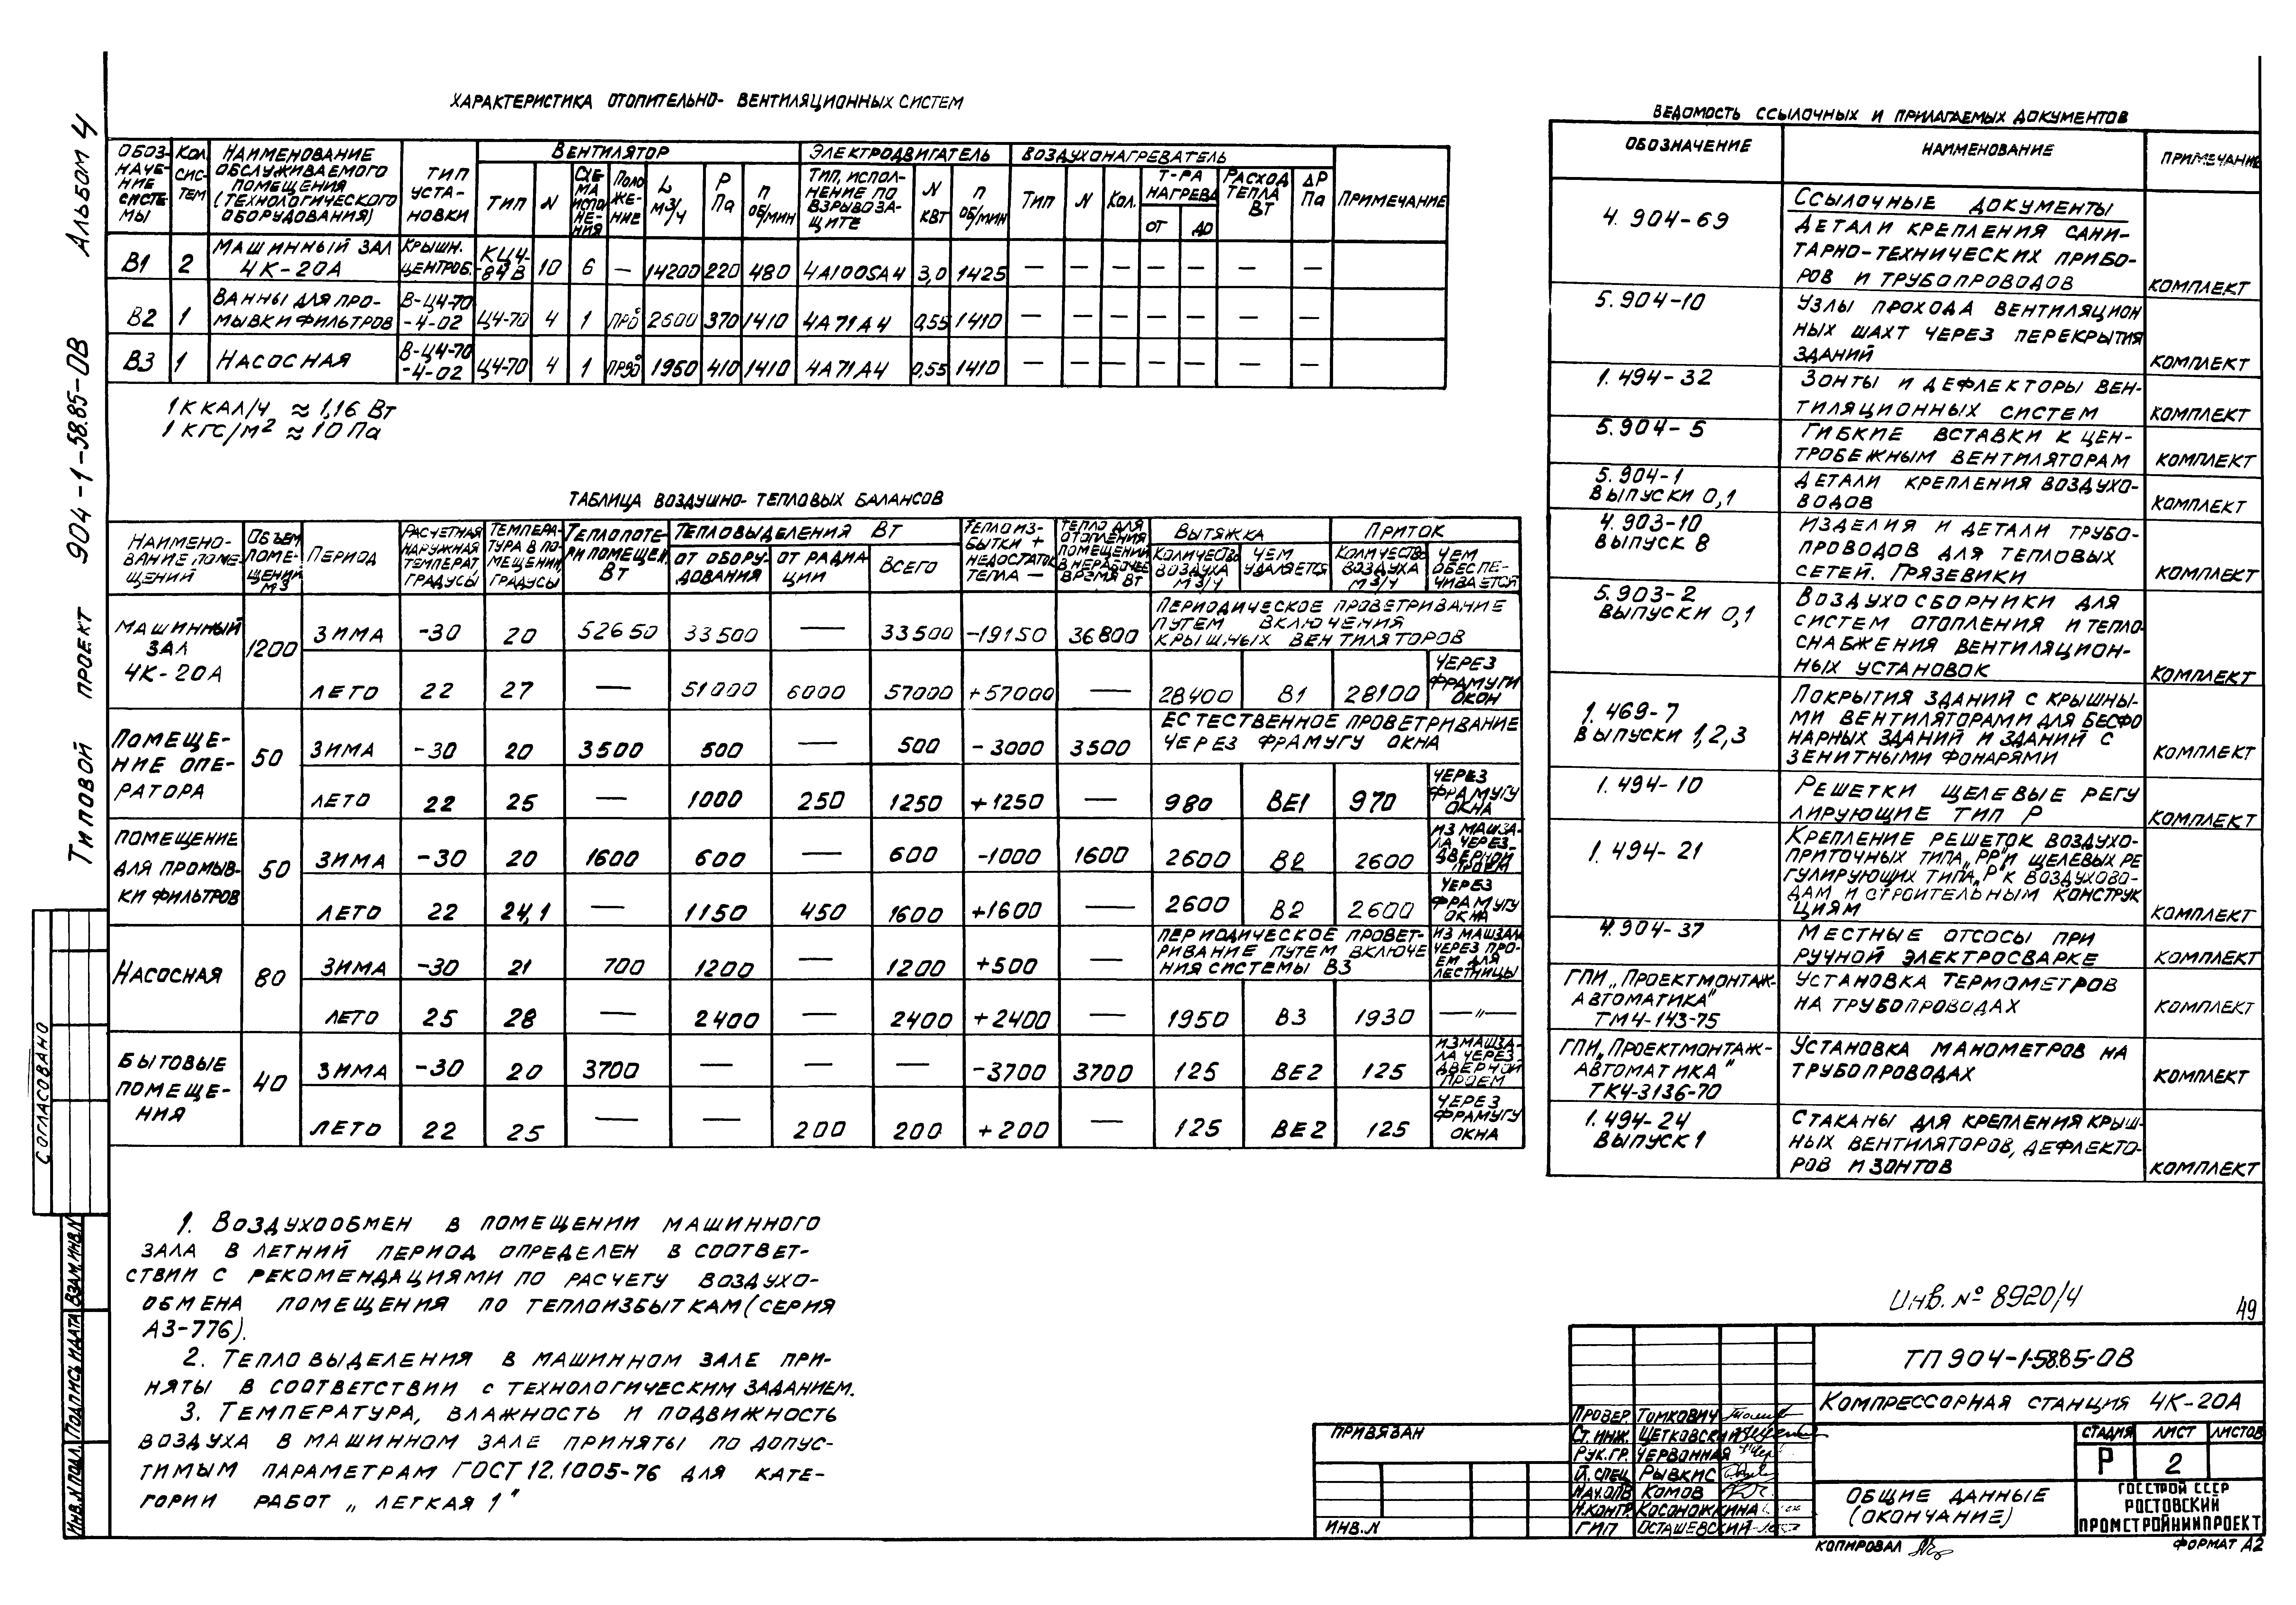 Типовой проект 904-1-58.85-ОВ Альбом 4
Характеристика отопительно-вентиляционных систем
Обозначение системы
Кол. систем
Наименование обслуживаемого помещения (технологического оборудования)
Тип установки
Вентилятор
Электродвигатель
Воздухонагреватель
Примечание
Тип N Схема исполнения Положение L м3/ч P Па n об/мин
Тип, исполнение по взрывозащите N кВт n об/мин
Тип N Кол. Т-ра нагрева от до Расход тепла Вт ΔP Па
В1 2 Машинный зал 4К-20А Крышн. центроб. КЦ4-84В 10 6 — 14200 220 480 4А100S А4 3,0 1425 — — — — — — —
В2 1 Ванны для промывки фильтров В-Ц4-70-4-02 Ц4-70 4 1 Пр0° 2600 370 1410 4А71А4 0,55 1410 — — — — — — —
В3 1 Насосная В-Ц4-70-4-02 Ц4-70 4 1 Пр90° 1950 410 1410 4А71А4 0,55 1410 — — — — — — —
1 ккал/ч ≈ 1,16 Вт
1 кгс/м² ≈ 10 Па
Таблица воздушно-тепловых балансов
Наименование помещений
Объем помещений м3
Период
Расчетная наружная температ. градусы
Температура в помещении градусы
Теплопотери помещен. Вт
Тепловыделения Вт
от оборудования от радиации Всего
Теплоизбытки + недостаток тепла —
Тепло для отопления помещений в нерабочее время Вт
Вытяжка
Количество воздуха м3/ч Чем удаляется
Приток
Количество воздуха м3/ч Чем обеспечивается
Машинный зал 4К-20А 1200 Зима -30 20 52650 33500 — 33500 -19150 36800 Периодическое проветривание путем включения крышных вентиляторов
Лето 22 27 — 51000 6000 57000 +57000 — 28400 В1 28100 Через фрамуги окон
Помещение оператора 50 Зима -30 20 3500 500 — 500 -3000 3500 Естественное проветривание через фрамугу окна
Лето 22 25 — 1000 250 1250 +1250 — 980 ВЕ1 970 Через фрамугу окна
Помещение для промывки фильтров 50 Зима -30 20 1600 600 — 600 -1000 1600 2600 В2 2600 Из машзала через дверной проем
Лето 22 24,1 — 1150 450 1600 +1600 — 2600 В2 2600 Через фрамугу окна
Насосная 80 Зима -30 21 700 1200 — 1200 +500 — Периодическое проветривание путем включения системы В3 Из машзал через проем для лестницы
Лето 25 28 — 2400 — 2400 +2400 — 1950 В3 1930 —"—
Бытовые помещения 40 Зима -30 20 3700 — — — -3700 3700 125 ВЕ2 125 Из машзала через дверной проем
Лето 22 25 — — 200 200 +200 — 125 ВЕ2 125 Через фрамугу окна
1. Воздухообмен в помещении машинного
зала в летний период определен в соответ-
ствии с рекомендациями по расчету воздухо-
обмена помещения по теплоизбыткам (серия
А3-776).
2. Тепловыделения в машинном зале при-
няты в соответствии с технологическим заданием.
3. Температура, влажность и подвижность
воздуха в машинном зале приняты по допус-
тимым параметрам ГОСТ 12.1.005-76 для кате-
гории работ „легкая 1"
Ведомость ссылочных и прилагаемых документов
Обозначение Наименование Примечание
Ссылочные документы
4.904-69 Детали крепления сани-
тарно-технических прибо-
ров и трубопроводов комплект
5.904-10 Узлы прохода вентиляцион
ных шахт через перекрытия
зданий комплект
1.494-32 Зонты и дефлекторы вен-
тиляционных систем комплект
5.904-5 Гибкие вставки к цен-
тробежным вентиляторам комплект
5.904-1 Детали крепления воздухо-
Выпуски 0,1 водов комплект
4.903-10 Изделия и детали трубо-
Выпуск 8 проводов для тепловых
сетей. Грязевики комплект
5.903-2 Воздухосборники для
Выпуски 0,1 систем отопления и тепло-
снабжения вентиляцион-
ных установок комплект
1.469-7 Покрытия зданий с крышны-
Выпуски 1,2,3 ми вентиляторами для бесфо
нарных зданий и зданий с
зенитными фонарями комплект
1.494-10 Решетки щелевые регу
лирующие тип Р комплект
1.494-21 Крепление решеток воздухо-
приточных типа „РР" и щелевых ре
гулирующих типа „Р" к воздухово-
дам и строительным конструк
циям комплект
4.904-37 Местные отсосы при
ручной электросварке комплект
ГПИ „Проектмонтаж- Установка термометров
автоматика" на трубопроводах комплект
ТМ4-143-75
ГПИ „Проектмонтаж- Установка манометров на
автоматика" трубопроводах комплект
ТК4-3136-70
1.494-24 Стаканы для крепления крыш-
Выпуск 1 ных вентиляторов, дефлекто-
ров и зонтов комплект
Инв. № 8920/4
49
ТП 904-1-58.85-ОВ
Компрессорная станция 4К-20А
Провер. Томкович
Ст. инж. Щетковский
Рук. гр. Червонная
Гл. спец. Рывкис
Нач. ОПВ Комов
Н. контр. Косоножкина
ГИП Осташевский
Стадия Лист Листов
Р 2
Общие данные
(окончание)
Госстрой СССР
Ростовский
Промстройниипроект
Привязан
Инв. N
Копировал
Формат А2
Согласовано
Взам. инв. N
Подпись и дата
Инв. N подл.